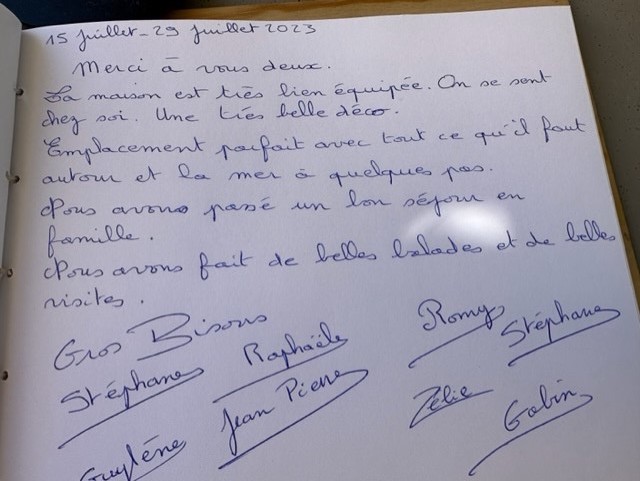 15 Juillet - 29 Juillet 2023
Merci à vous deux.
La maison est très bien équipée. On se sent
chez soi. Une très belle déco.
Emplacement parfait avec tout ce qu'il faut
autour et la mer à quelques pas.
Nous avons passé un bon séjour en
famille.
Nous avons fait de belles balades et de belles
visites.
Gros Bisous
Stéphane Raphaële Romy Stéphane
Guylène Jean Pierre Zélie Gabin